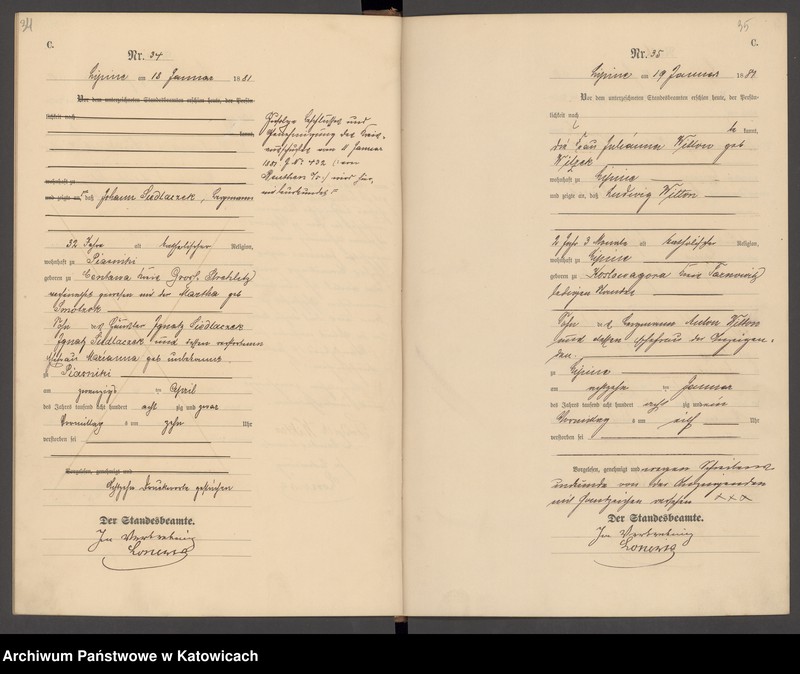 34
C.
Nr. 34
Lipine am 18 Januar 1881
Vor dem unterzeichneten Standesbeamten erschien heute, der Persön-
lichkeit nach
kannt,
wohnhaft zu
und zeigte an, daß Johann Siedlaczek, Bergmann
32 Jahre alt katholischer Religion,
wohnhaft zu
geboren zu Centawa Kreis Groß Strehlitz
verheirathet gewesen mit der Martha geb
Smolczek
Sohn des Häusler Ignatz Siedlaczek
Ignatz Siedlaczek und dessen verstorbenen
Ehefrau Marianna geb unbekannt
zu
am zwanzigs ten April
des Jahres tausend acht hundert acht zig und zwar
Vormittag s um zehn Uhr
verstorben sei
Vorgelesen, genehmigt und
Achtzehn Druckworte gestrichen
Der Standesbeamte.
In Vertretung
Zufolge Beschlusses und
Genehmigung des Kreis-
ausschusses vom 11 Januar
1881 J. N. 432
Beuthen O/S. wird hier
35
C.
Nr. 35
Lipine am 19 Januar 188
Vor dem unterzeichneten Standesbeamten erschien heute, der Persön-
lichkeit nach
be kannt,
die Frau Julianna Witton geb
wohnhaft zu Lipine
und zeigte an, daß Ludwig Witton
2 Jahr 3 Monate alt katholischer Religion,
wohnhaft zu Lipine
geboren zu Koslowagora Kreis Tarnowitz
ledigen Standes
Sohn des Bergmann Anton Witton
und dessen Ehefrau der Anzeigen-
den.
zu Lipine
am achtzehn ten Januar
des Jahres tausend acht hundert acht zig und ein
Vormittag s um elf Uhr
verstorben sei
Vorgelesen, genehmigt und wegen Schreibens
unkunde von der Anzeigenden
mit Handzeichen versehen xxx
Der Standesbeamte.
In Vertretung
Archiwum Państwowe w Katowicach